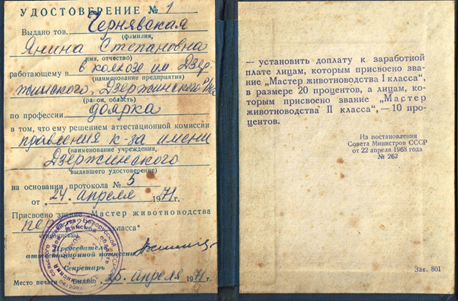 УДОСТОВЕРЕНИЕ № 1
Выдано тов. Чернявская
(фамилия,
Янина Степановна
имя, отчество)
работающему в колхозе им. Дзер-
(наименование предприятия)
жинского, Дзержинского
(район, область)
по профессии доярка
в том, что ему решением аттестационной комиссии
правления к-за имени
(наименование учреждения,
Дзержинского
выдавшего удостоверение)
на основании протокола № 5
от „24" апреля 1971 г.
Присвоено звание „Мастер животноводства
класса"
Председатель
аттестационной комиссии
Секретарь
Место печати апреля 1971 г.
— установить доплату к заработной
плате лицам, которым присвоено зва-
ние „Мастер животноводства I класса",
в размере 20 процентов, а лицам, ко-
торым присвоено звание „Мастер
животноводства II класса",—10 про-
центов.
Из постановления
Совета Министров СССР
от 22 апреля 1968 года
№ 262
Зак. 801